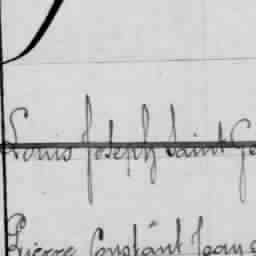 Louis Joseph Saint Ge
Pierre Constant Jean